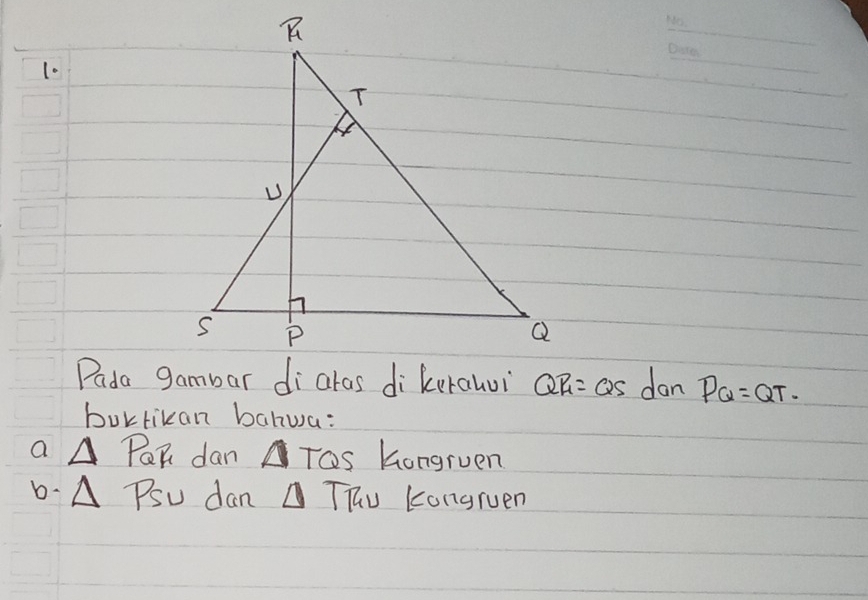 No.
Date
R
1.
T
U
S
P
Q
Pada gambar di atas di ketahui QR = QS dan PQ = QT.
buktikan bahwa:
a Δ PQR dan Δ TQS kongruen
b. Δ PSU dan Δ TRU kongruen